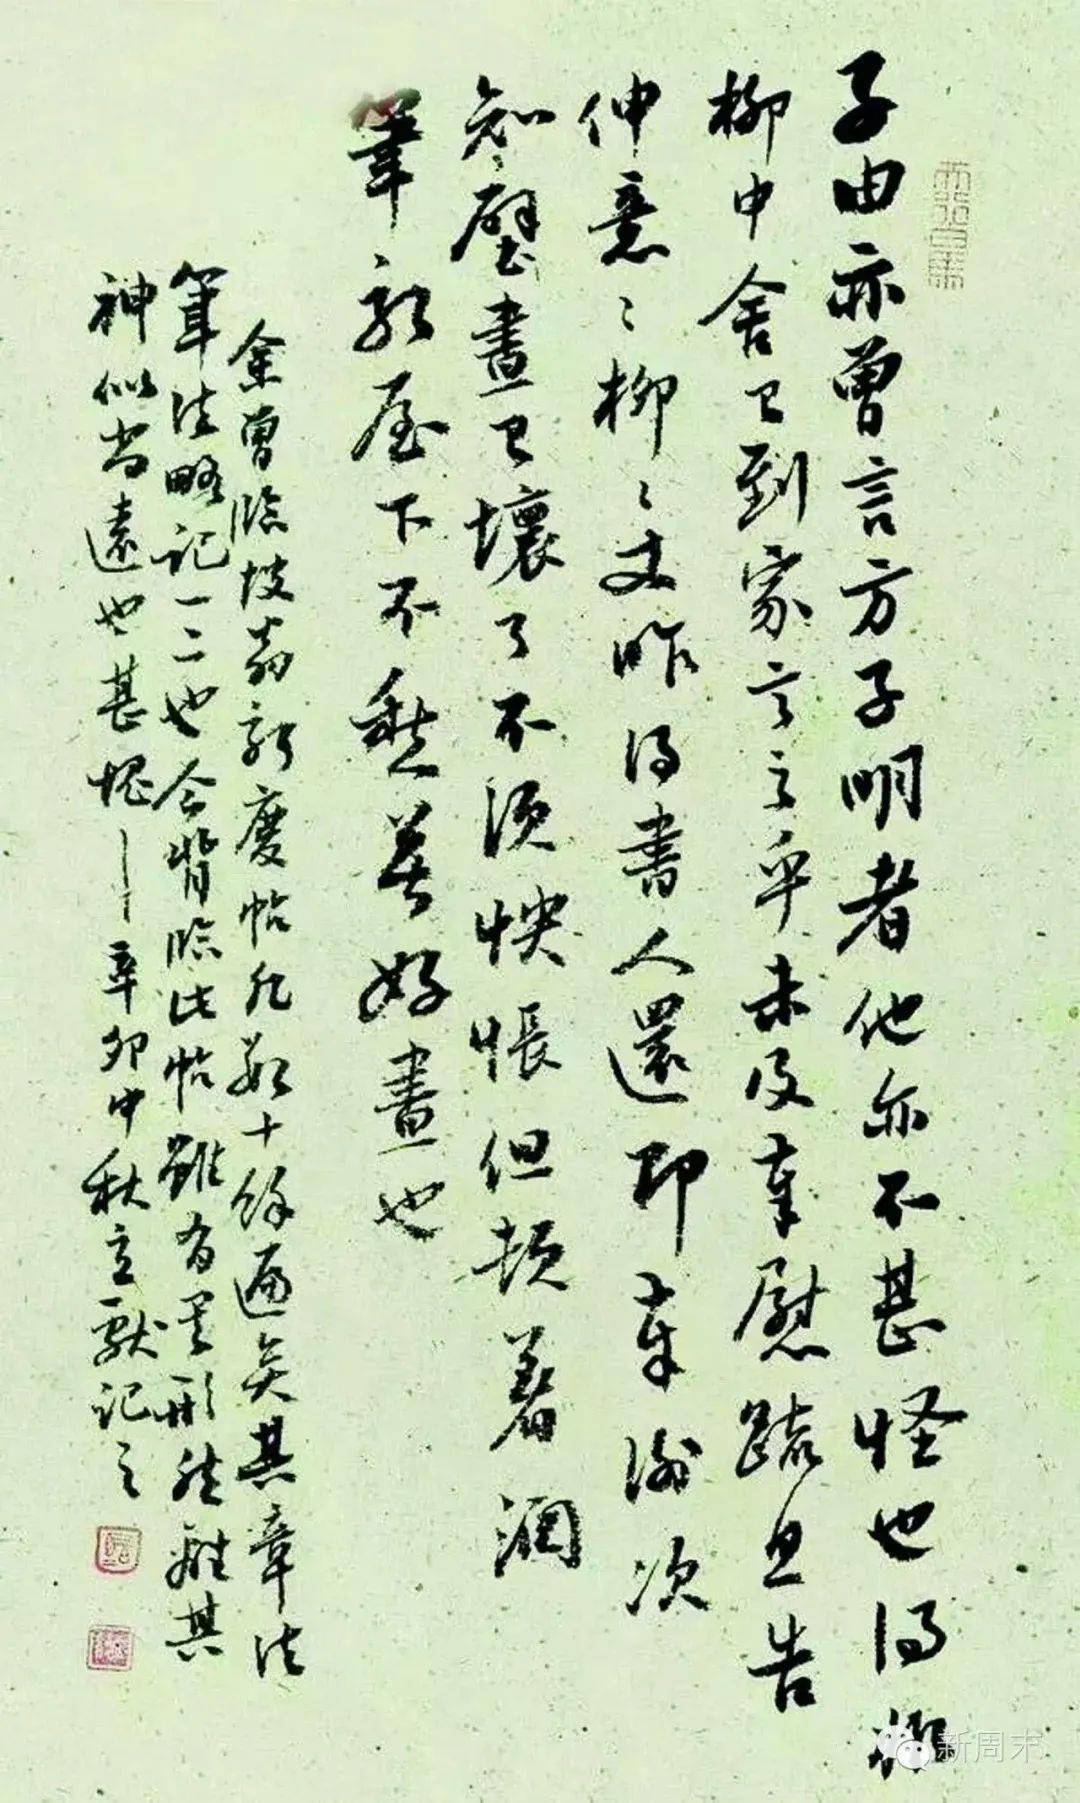 子由亦曾言方子明者他亦不甚怪也得
柳中舍已到家言之乎未及奉慰疏且告
伸意〻柳〻丈昨得書人還即奉謝次
知壁畫已壞了不須怏悵但頓著潤
筆新屋下不愁無好畫也
余曾臨坡翁新慶帖凡數十餘遍矣其章法
筆法略記一二也今背臨此帖雖有其形然離其
神似尚遠也甚愧〻辛卯中秋立獻記之
新周末